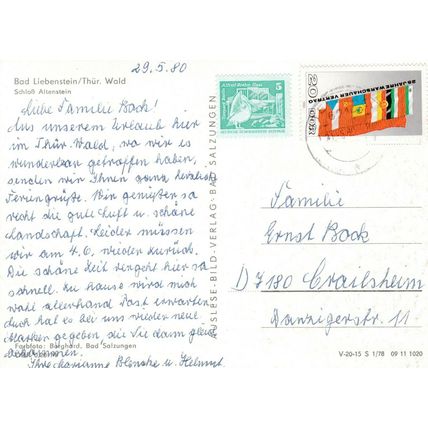 29.5.80
Bad Liebenstein/Thür. Wald
Schloß Altenstein
Liebe Familie Bock!
Aus unserem Urlaub hier
im Thür. Wald, wo wir es
wunderbar getroffen haben,
senden wir Ihnen ganz herzliche
Feriengrüße. Wir genießen so
recht die gute Luft u. schöne
Landschaft. Leider müssen
wir am 4.6. wieder zurück.
Die schöne Zeit vergeht hier so
schnell. Zu Hause wird mich
wohl allerhand Post erwarten,
doch hat es bei uns wieder neue
Marken gegeben die Sie dann gleich
bekommen.
Ihre Marianne u. Helmut
Farbfoto: Darghard, Bad Salzungen
AUSLESE-BILD-VERLAG · BAD SALZUNGEN
5
25 JAHRE WARSCHAUER VERTRAG
20 DDR
Familie
Ernst Bock
D 7180 Crailsheim
Danzigerstr. 11
V-20-15 S 1/78 09 11 1020